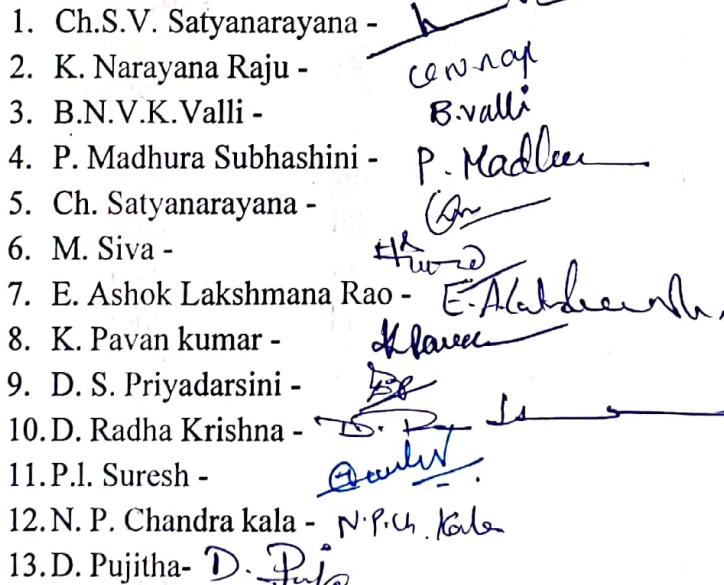 1. Ch.S.V. Satyanarayana -
2. K. Narayana Raju -
3. B.N.V.K.Valli - B.valli
4. P. Madhura Subhashini - P. Madhu
5. Ch. Satyanarayana -
6. M. Siva -
7. E. Ashok Lakshmana Rao -
8. K. Pavan kumar -
9. D. S. Priyadarsini -
10. D. Radha Krishna -
11. P.l. Suresh -
12. N. P. Chandra kala - N.P.Ch. Kala
13. D. Pujitha- D. Puja